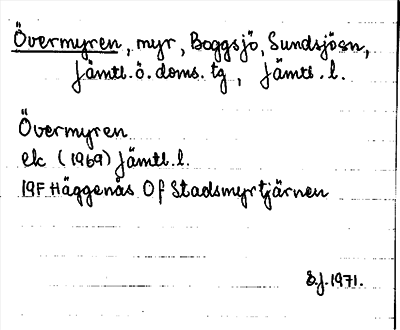 Övermyren, myr, Boggsjö, Sundsjö sn,
Jämtl. ö. doms. tg, Jämtl. l.
Övermyren
ek (1969) Jämtl. l.
19F Häggenås Of Stadsmyrtjärnen
S.J. 1971.